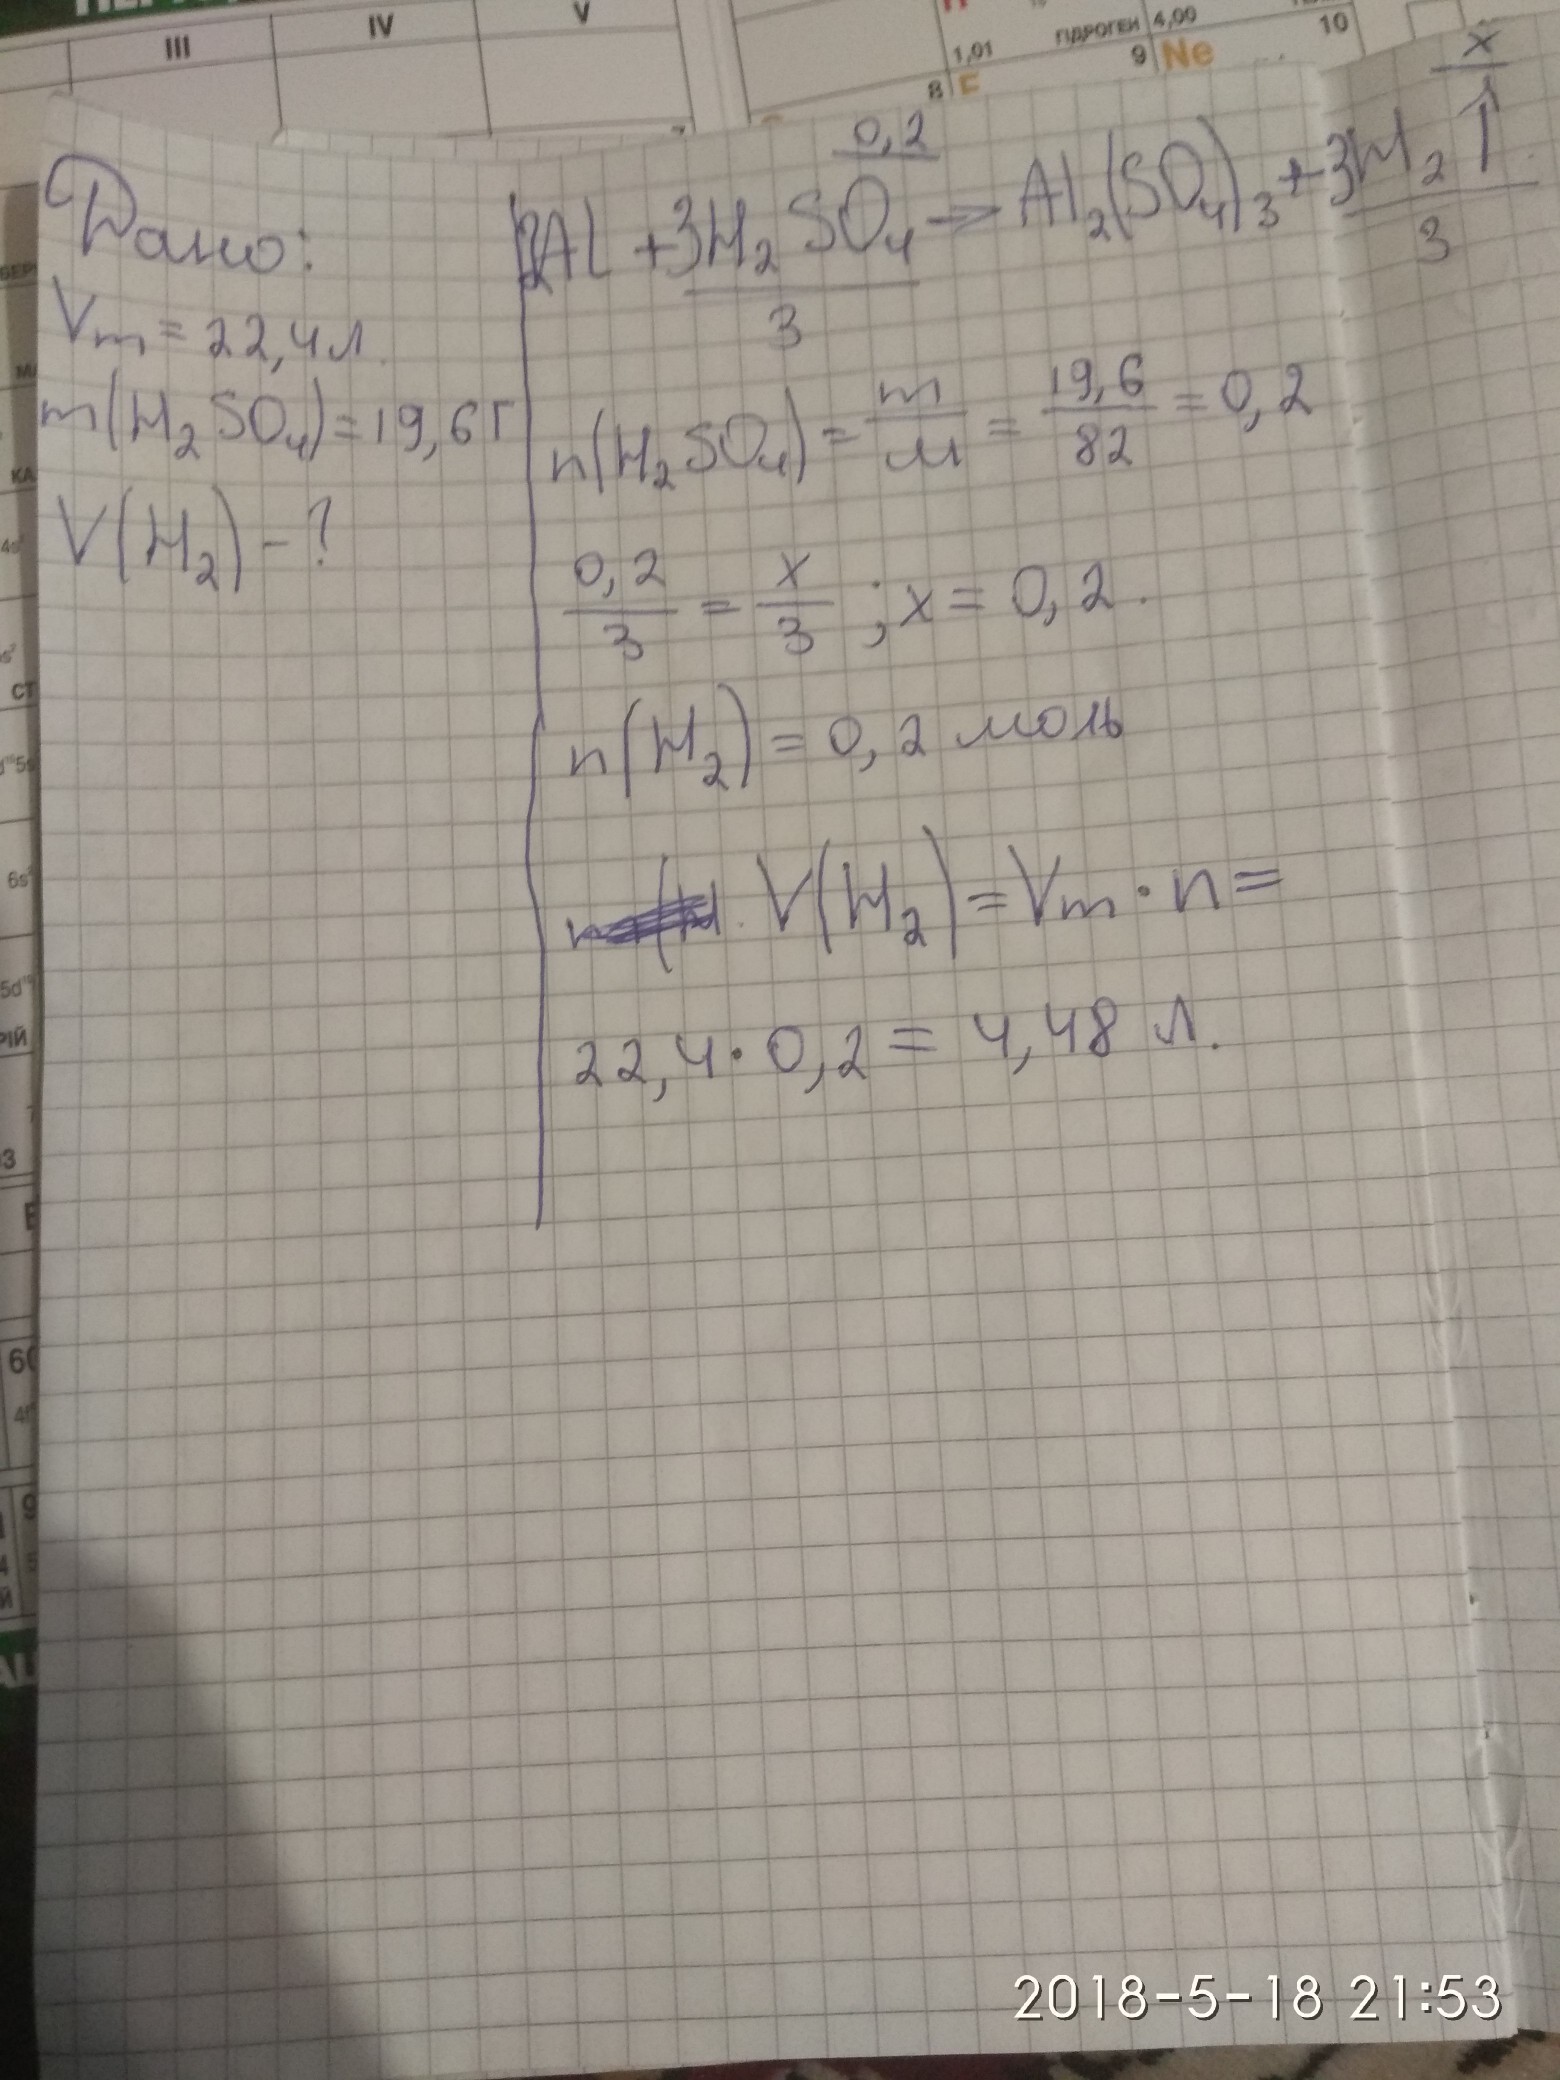 III IV V
1,01 ГІДРОГЕН 4,00
8 F 9 Ne 10
Дано:
Vm = 22,4л.
m(H2SO4)=19,6 Г
V(H2) - ?
0,2 x
2Al + 3H2SO4 => Al2(SO4)3 + 3H2↑
3 3
n(H2SO4) = m/M = 19,6/82 = 0,2
0,2/3 = x/3 ; x = 0,2.
n(H2) = 0,2 моль
V(H2) = Vm · n =
22,4 · 0,2 = 4,48 л.
2018-5-18 21:53